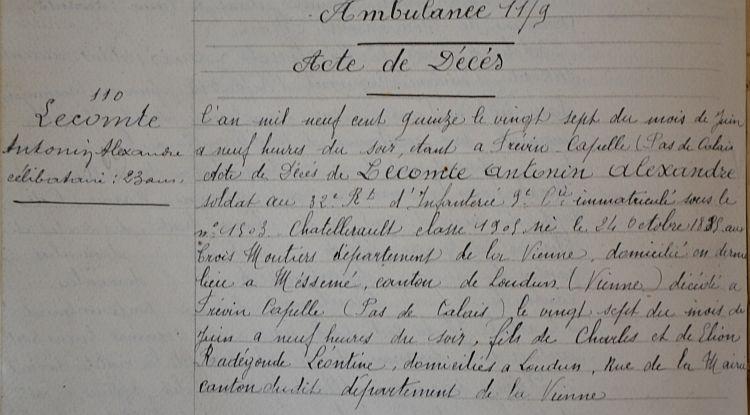 Ambulance 11/9
Acte de Décés
110
Lecomte
Antonin Alexandre
célibataire : 23 ans.
L'an mil neuf cent quinze le vingt sept du mois de Juin
a neuf heures du soir, étant a Frévin-Capelle (Pas de Calais
Acte de Décés de Lecomte Antonin Alexandre
soldat au 32e Rt d'Infanterie 9e Cie immatriculé sous le
no 1503 Chatellerault classe 1905 né le 24 Octobre aux
Trois Moutiers département de la Vienne, domicilié en dernier
lieu a Méssemé, canton de Loudun (Vienne) décédé a
Frévin Capelle (Pas de Calais) le vingt sept du mois de
Juin a neuf heures du soir, fils de Charles et de Elion
Radégonde Léontine, domiciliés a Loudun, rue de la Mairie
canton dudit département de la Vienne